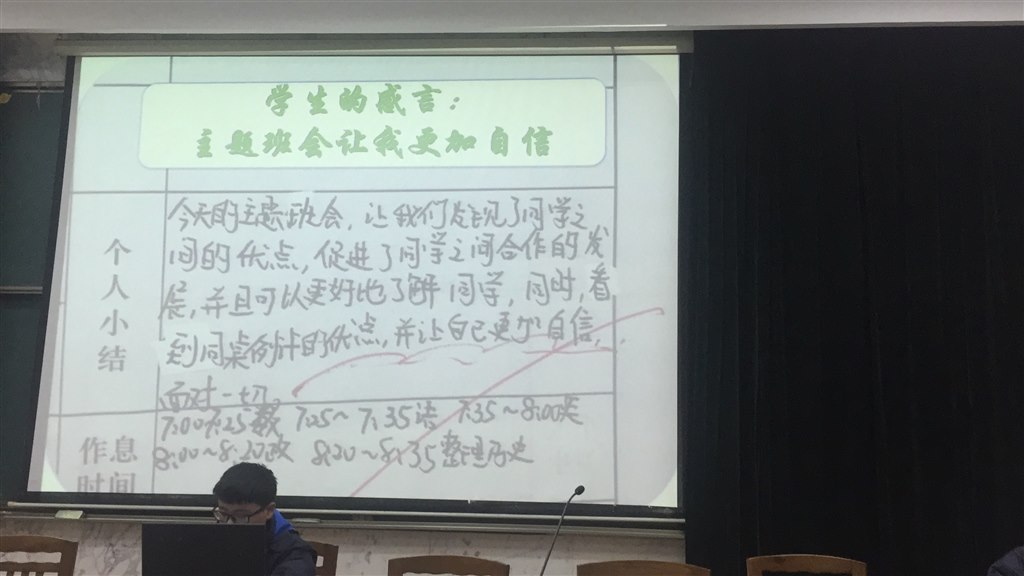 学生的感言：
主题班会让我更加自信
个人小结
今天的主题班会，让我们发现了同学之
间的优点，促进了同学之间合作的发
展，并且可以更好地了解同学，同时，看
到同桌例计的优点，并让自己更加自信，
面对一切。
作息时间
7:00 7:25数 7:25～7:35语 7:35～8:00英
8:00～8:20政 8:20～8:35整理历史